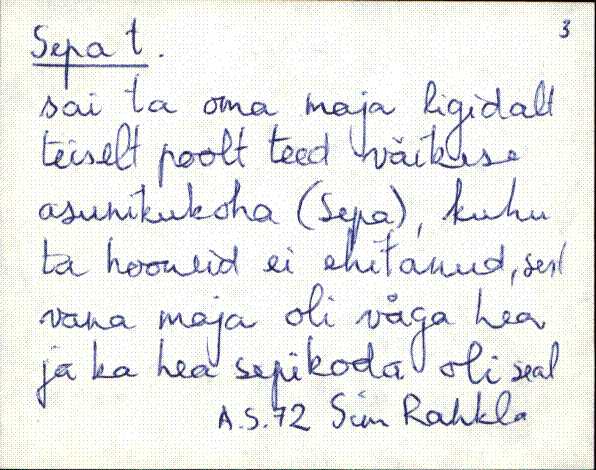 3
Sepa t.
sai ta oma maja ligidalt
teiselt poolt teed väikese
asunikukoha (Sepa), kuhu
ta hooneid ei ehitanud, sest
vana maja oli väga hea
ja ka hea sepikoda oli seal
A.S.72 Siim Rahkla